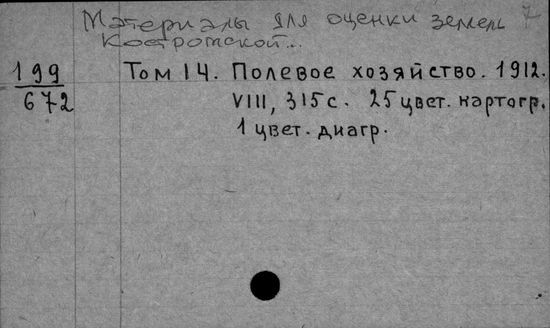 Материалы для оценки земель 7
Костромской...
199
672
Том 14. Полевое хозяйство. 1912.
VIII, 315 с. 25 цвет. картогр.
1 цвет. диагр.